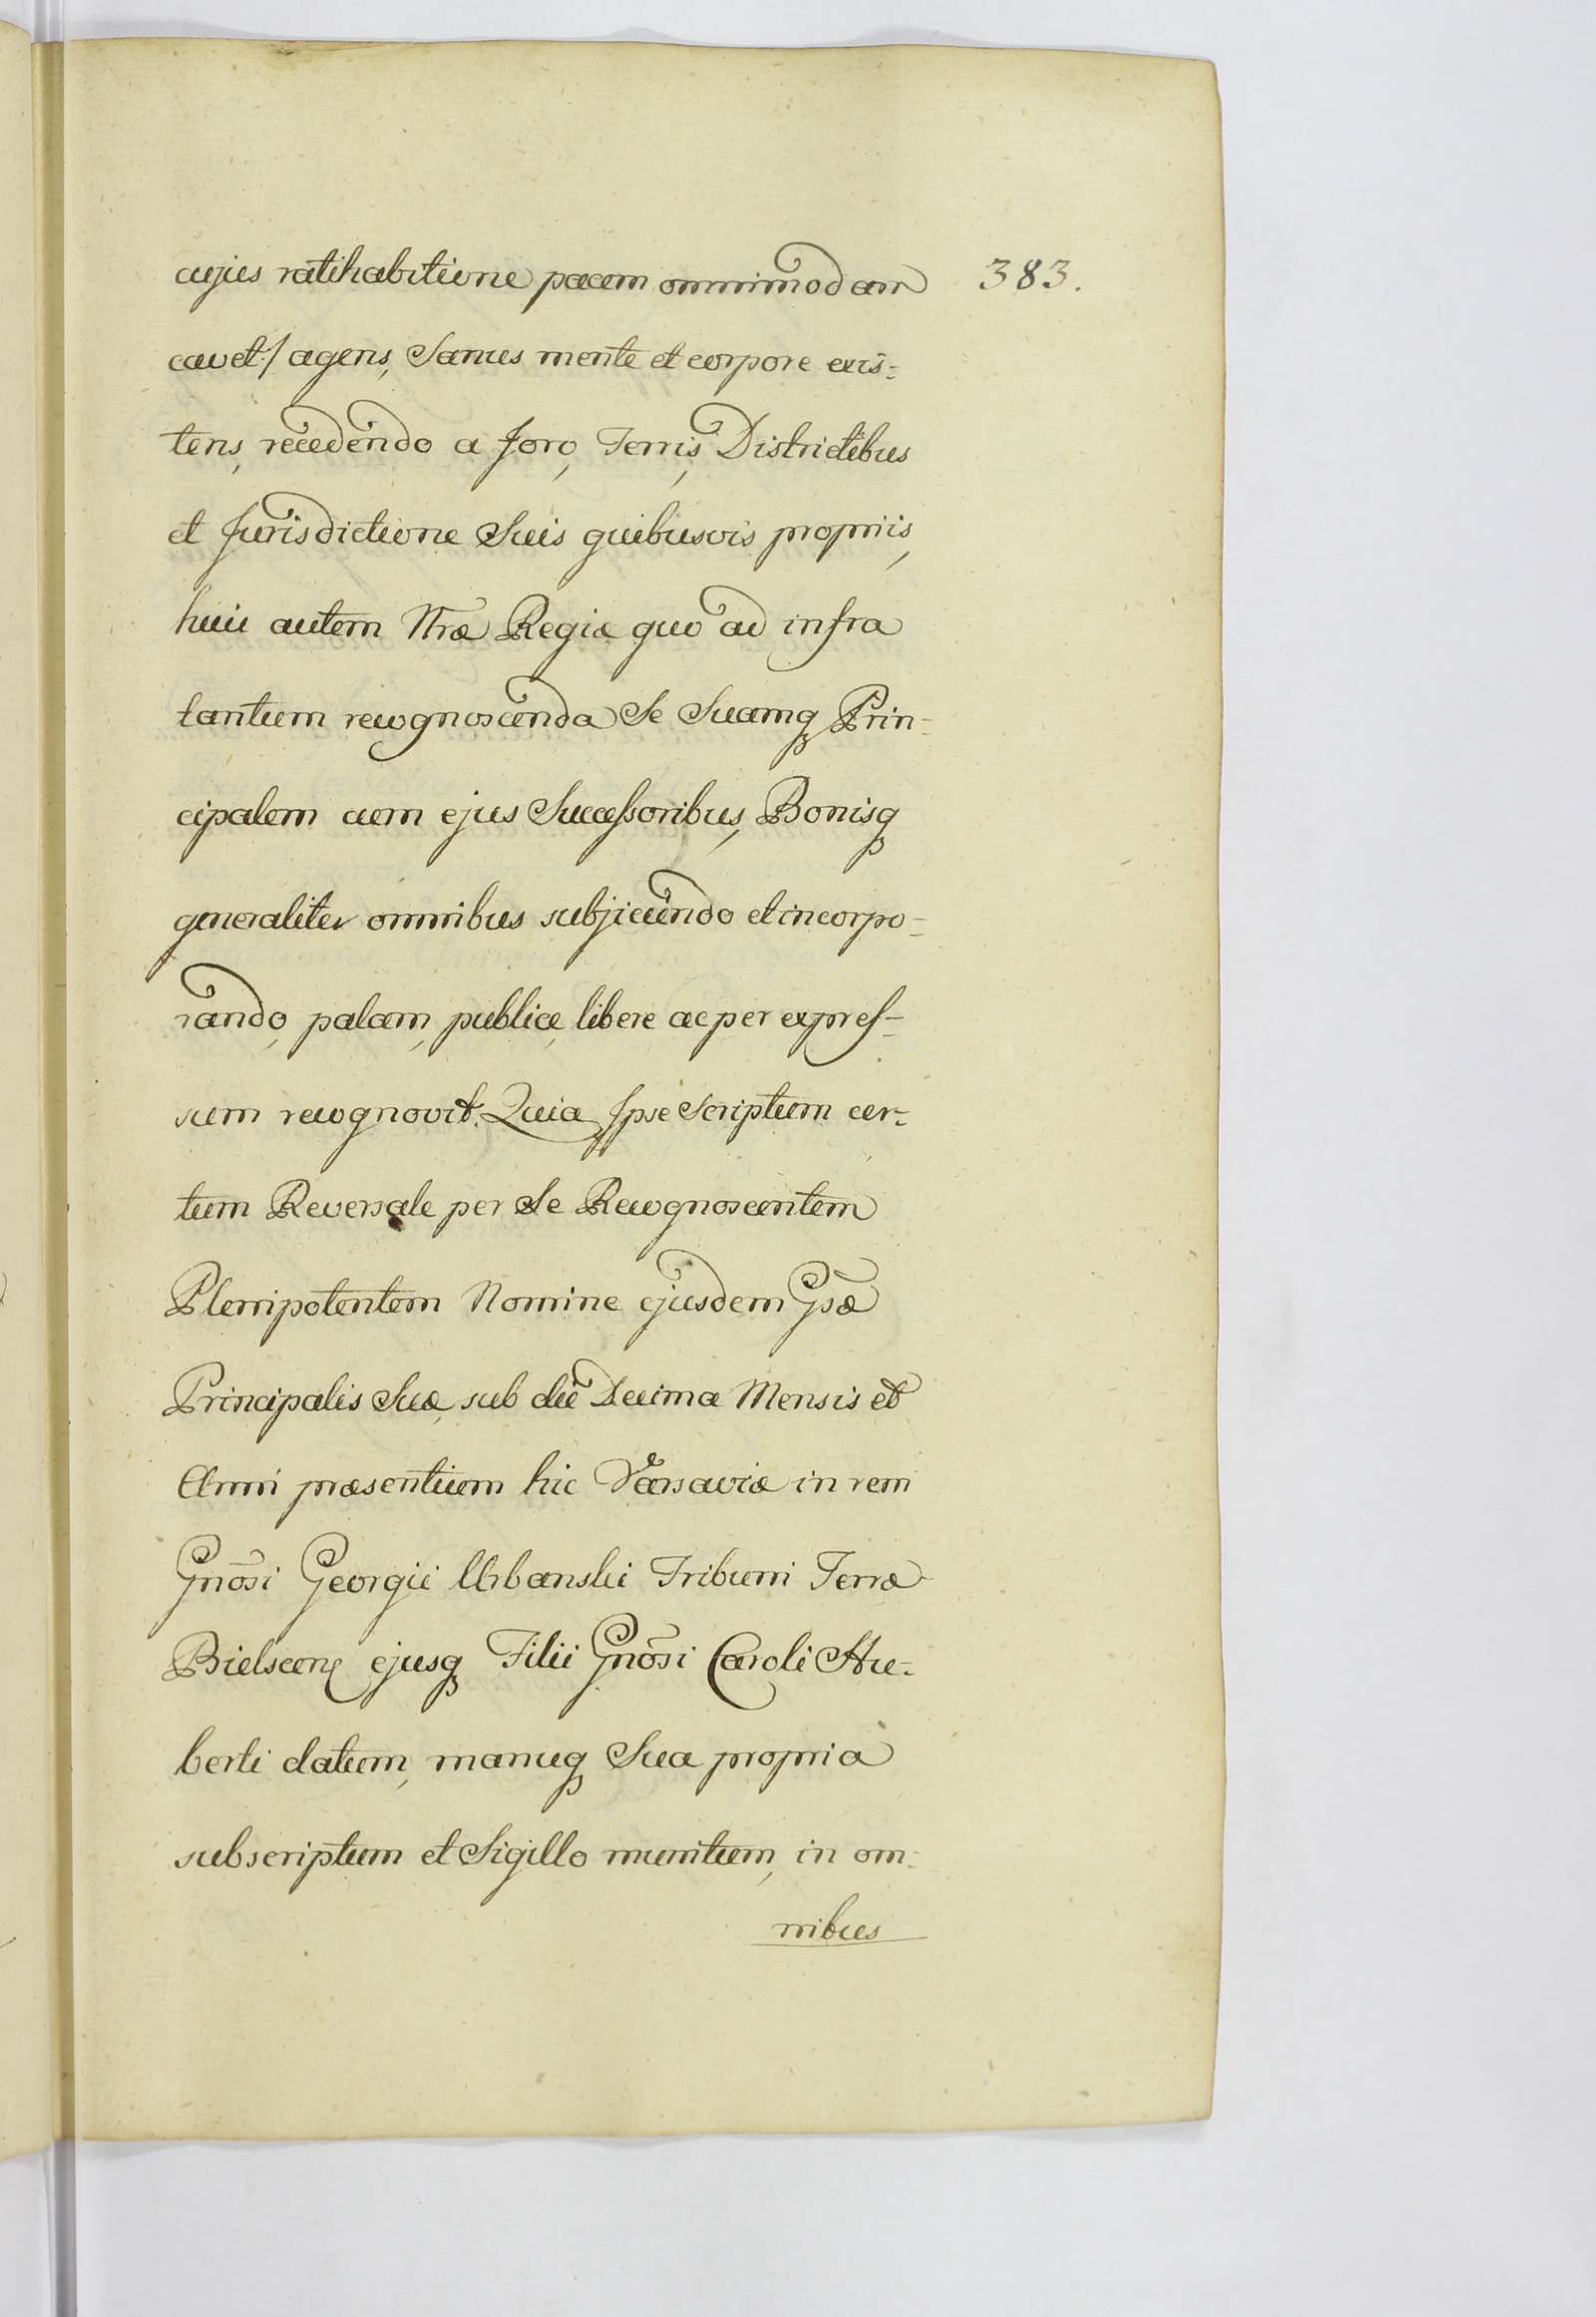 cujus ratihabitione pacem omnimodam 383.
cavet/ agens, Sanus mente et corpore exis-
tens, recedendo a foro, Terris, Districtibus
et Jurisdictione Suis quibusvis propriis,
huic autem Nrae Regiae quo ad infra
tantum recognoscenda Se Suamq Prin-
cipalem cum ejus Successoribus, Bonisq
generaliter omnibus subjiciendo et incorpo-
rando, palam, publice, libere ac per expres-
sum recognovit. Quia Ipse Scriptum cer-
tum Reversale per Se Recognoscentem
Plenipotentem Nomine ejusdem Gsae
Principalis Suae, sub die Decima Mensis et
Anni praesentium hic Varsaviae in rem
Gnosi Georgii Urbanski Tribuni Terrae
Bielscen ejusq Filii Gnosi Caroli Hu-
berti datum, manuq Sua propria
subscriptum et Sigillo munitum, in om-
nibus